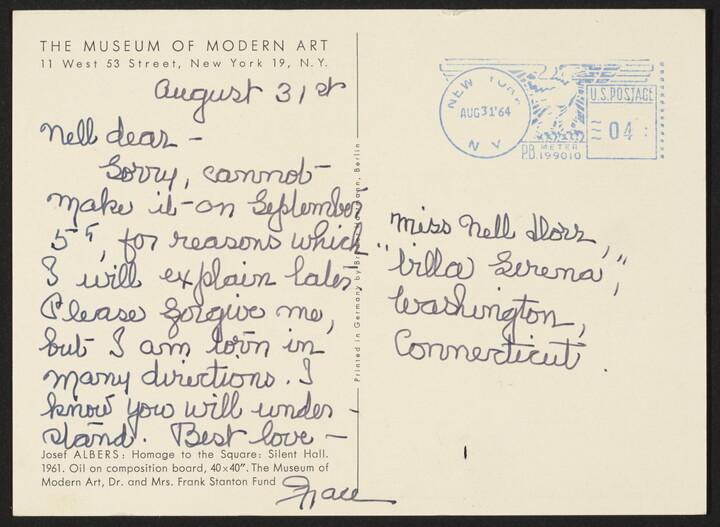 THE MUSEUM OF MODERN ART
11 West 53 Street, New York 19, N.Y.
August 31st
Nell dear –
Sorry, cannot
make it on September
5th, for reasons which
I will explain later.
Please forgive me,
but I am torn in
many directions. I
know you will under-
stand. Best love –
Grace
Josef ALBERS: Homage to the Square: Silent Hall.
1961. Oil on composition board, 40×40". The Museum of
Modern Art, Dr. and Mrs. Frank Stanton Fund
Printed in Germany by Brüder Hartmann, Berlin
NEW YORK
AUG 31 '64
N Y
U.S. POSTAGE
04
P.B. METER
199010
Miss Nell Dorr,
"Villa Serena",
Washington,
Connecticut.